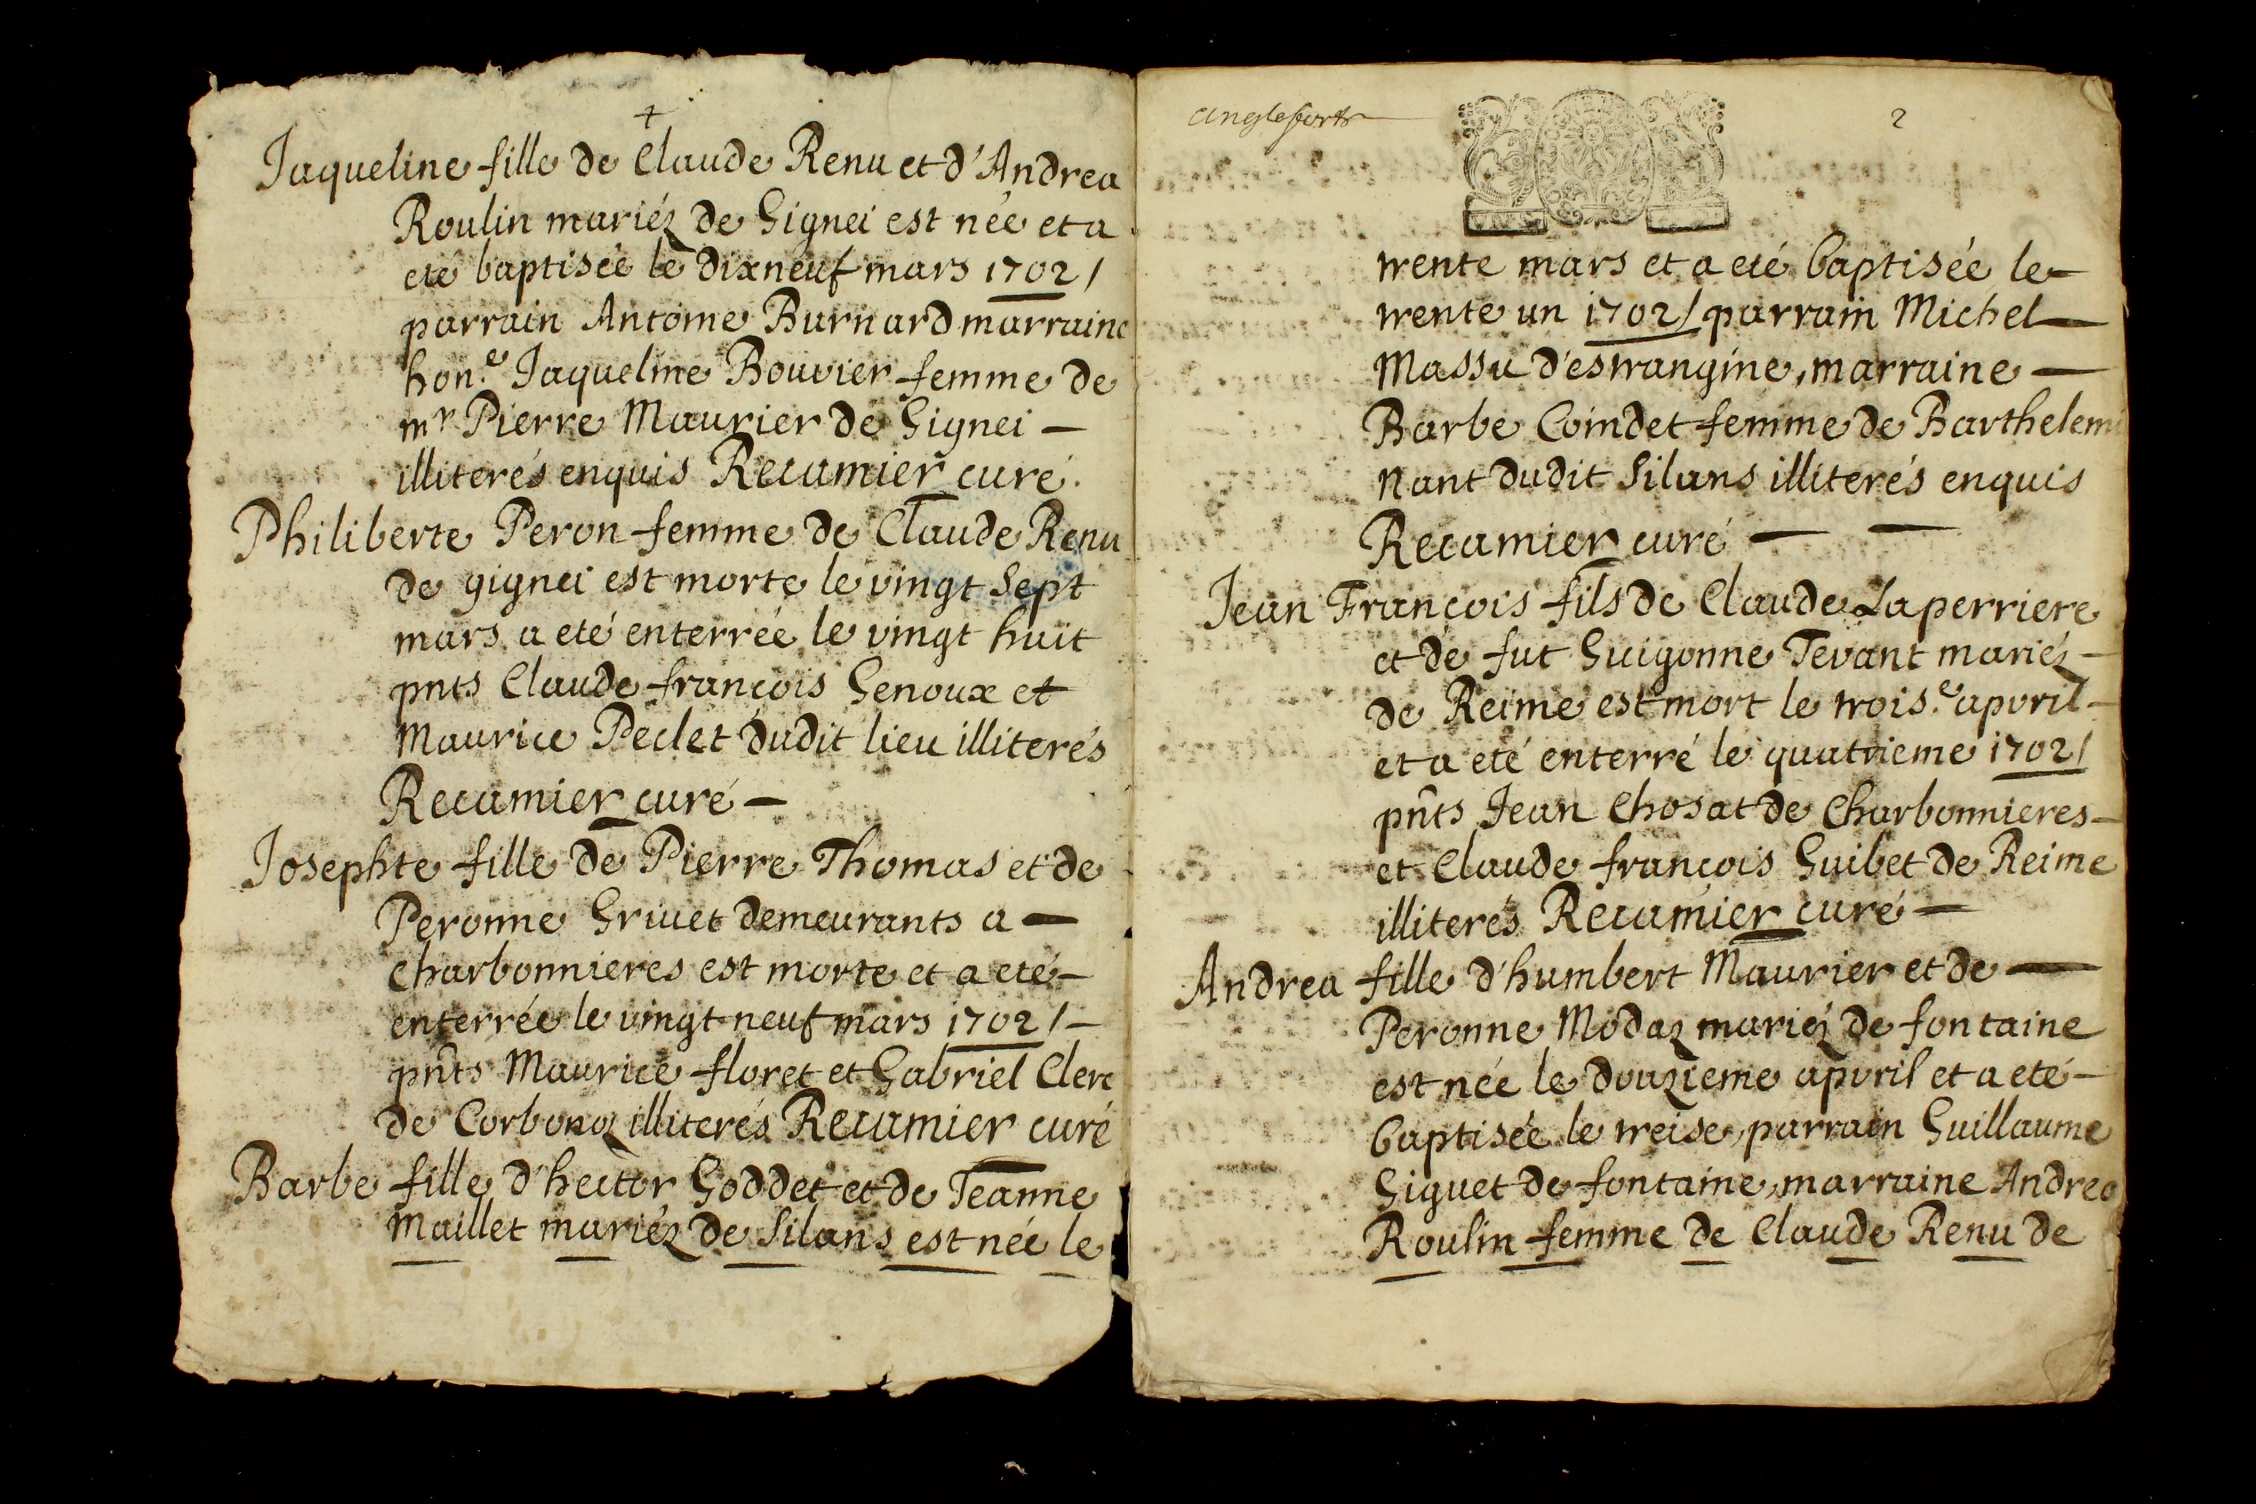 +
Jaqueline fille de Claude Renu et d'Andrea
Roulin mariéz de Gignei est née et a
eté baptisée le dixneuf mars 1702/
parrain Antoine Burnard marraine
hon.e Jaqueline Bouvier femme de
mr Pierre Maurier de Gignei —
illiterés enquis Recamier curé.
Philiberte Peron femme de Claude Renu
de gignei est morte le vingt sept
mars a eté enterrée le vingt huit
pnts Claude françois Genoux et
Maurice Peclet dudit lieu illiterés
Recamier curé —
Josephte fille de Pierre Thomas et de
Peronne Grivet demeurants a —
Charbonnieres est morte et a eté —
enterrée le vingt neuf mars 1702/ —
pñts Maurice floret et Gabriel Clerc
de Corbonoz illiterés Recamier curé
Barbe fille d'hector Goddet et de Jeanne
Maillet mariéz de Silans est née le
Anglefort
2
trente mars et a eté baptisée le —
trente un 1702/ parrain Michel —
Massu d'estrangine, marraine —
Barbe Coindet femme de Barthelemi
Nant dudit Silans illiterés enquis
Recamier curé — —
Jean François fils de Claude Laperriere
et de fut Guigonne Tevant mariéz —
de Reime est mort le trois.e apvril —
et a eté enterré le quatrieme 1702/
pñts Jean Chosat de Charbonnieres —
et Claude françois Guibet de Reime
illiterés Recamier curé —
Andrea fille d'humbert Maurier et de —
Peronne Modaz mariéz de fontaine
est née le douzieme apvril et a eté —
baptisée le treise, parrain Guillaume
Giguet de fontaine, marraine Andrea
Roulin femme de Claude Renu de